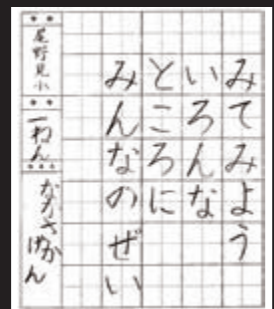 みてみよう
いろんな
ところに
みんなのぜい
尾野見小
一ねん
ながさか
けん